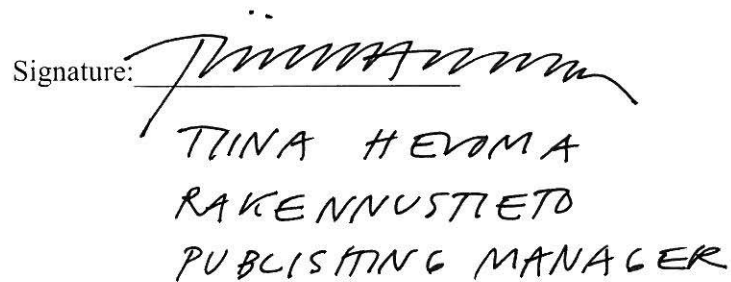 Signature:
TIINA HEVOMA
RAKENNUSTIETO
PUBLISHING MANAGER